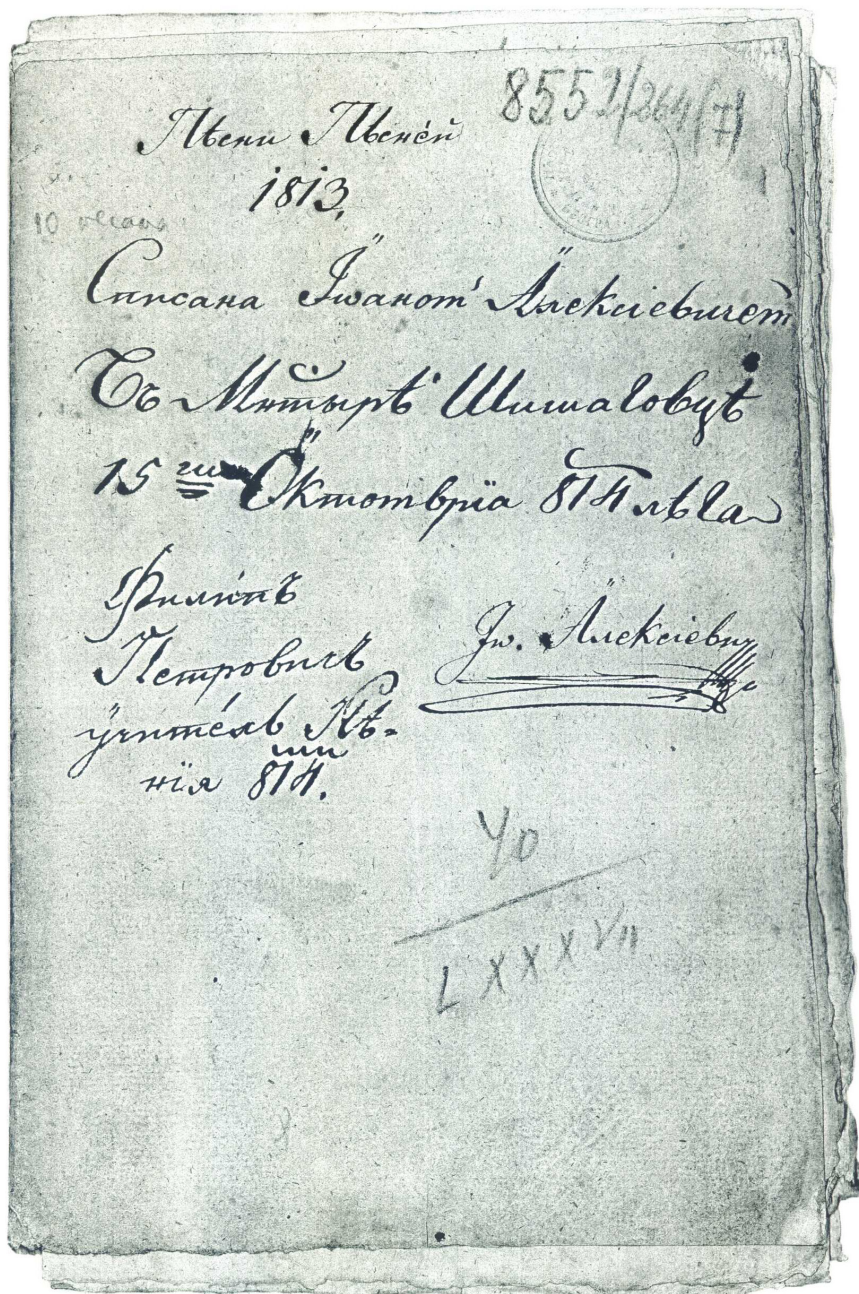 8552/264/7)
Пѣсни Пѣсней
1813.
10 листова
Списана Їѡаном Алексіевичем
Въ Мнтырѣ Шишатовцѣ
15 ги Октомврїа 814 лѣта
Филипъ
Петровичъ
учитель Кѣ-
нїя 814.
Їѡ. Алексіевич
40
LXXXVII
8